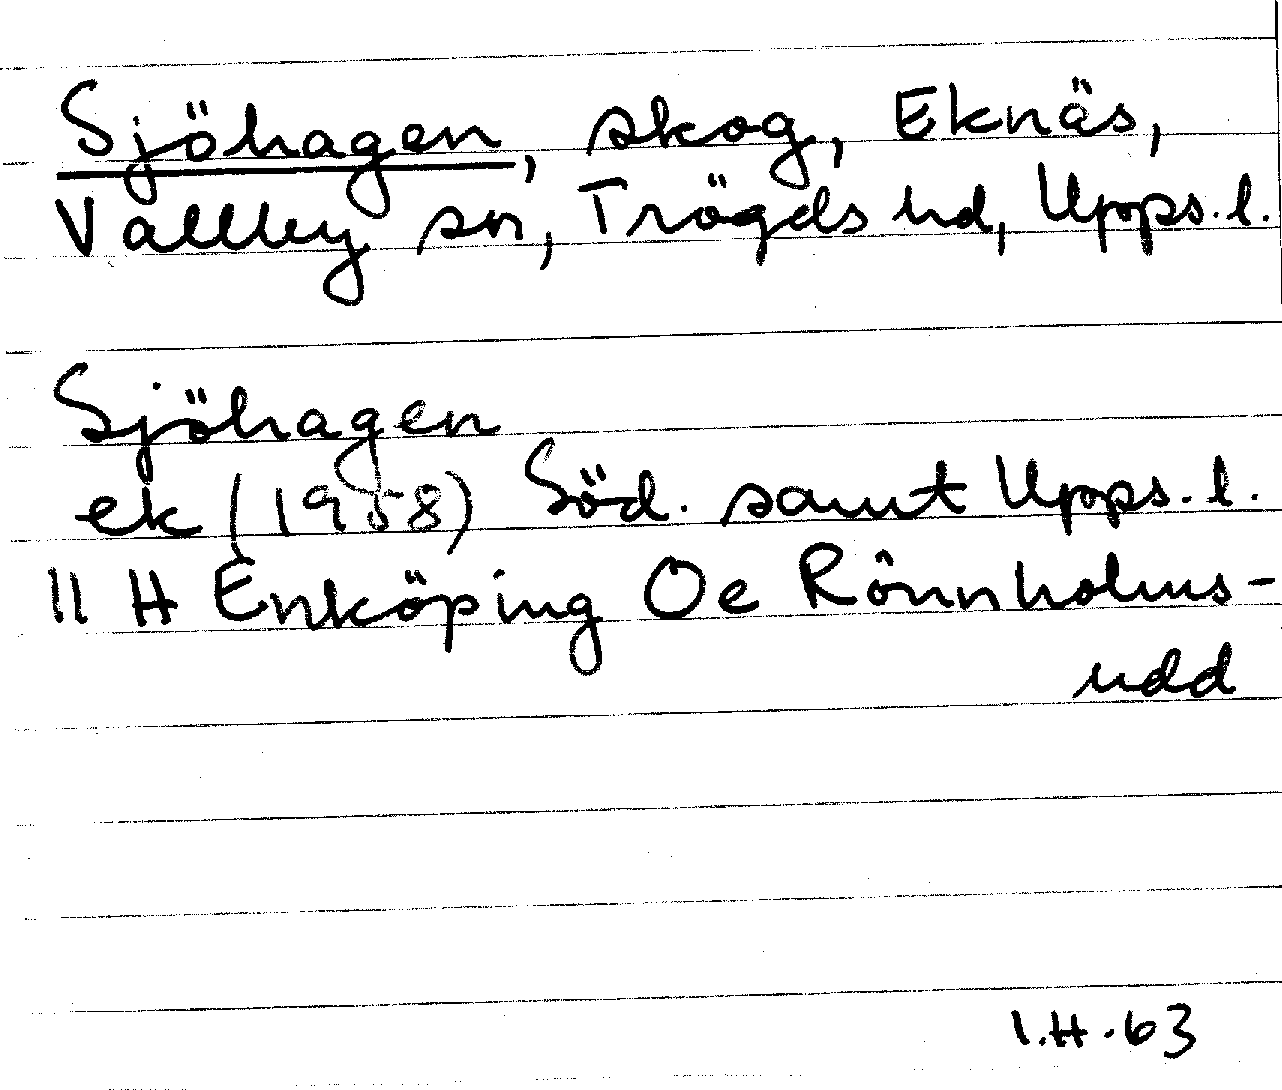 Sjöhagen, skog, Eknäs,
Vallby sn, Trögds hd, Upps. l.
Sjöhagen
ek (1958) Söd. samt Upps. l.
11 H Enköping Oe Rönnholms-
udd
1.H.63